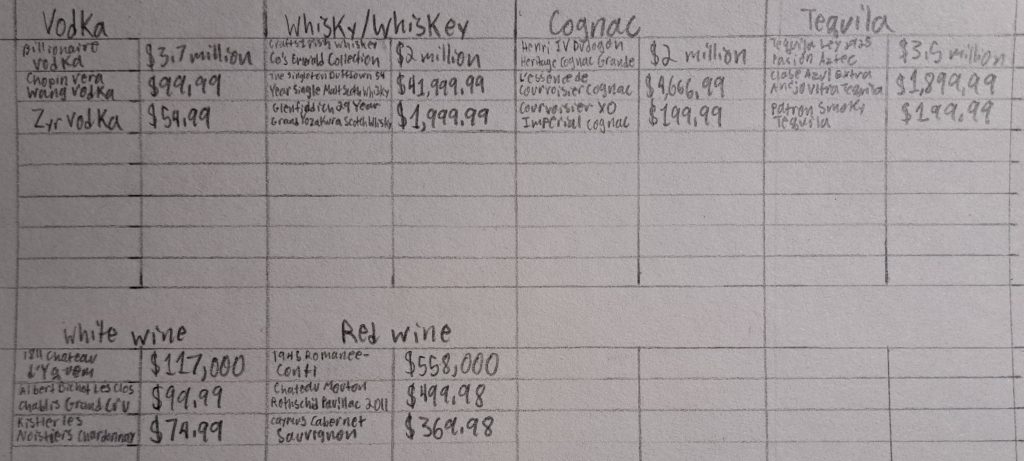 Vodka
Whisky/Whiskey
Cognac
Tequila
Billionaire
Vodka
$3.7 million
Craft Irish Whiskey
Co's Emerald Collection
$2 million
Henri IV Dudogon
Heritage Cognac Grande
$2 million
Tequila Ley .925
Pasion Aztec
$3.5 million
Chopin Vera
Wang Vodka
$99.99
The Singleton Dufftown 54
Year Single Malt Scotch Whisky
$41,999.99
L'essence de
Courvoisier cognac
$4,666.99
Clase Azul Extra
Anejo Ultra Tequila
$1,899.99
Zyr Vodka
$54.99
Glenfiddich 29 Year
Grand Yozakura Scotch Whisky
$1,999.99
Courvoisier XO
Imperial cognac
$199.99
Patron Smoky
Tequila
$199.99
White wine
Red wine
1811 Chateau
d'Yquem
$117,000
1945 Romanee-
Conti
$558,000
Albert Bichot Les Clos
Chablis Grand Cru
$99.99
Chateau Mouton
Rothschild 2011
$499.98
Kistler les
Noisetiers Chardonnay
$74.99
Caymus Cabernet
Sauvignon
$369.98